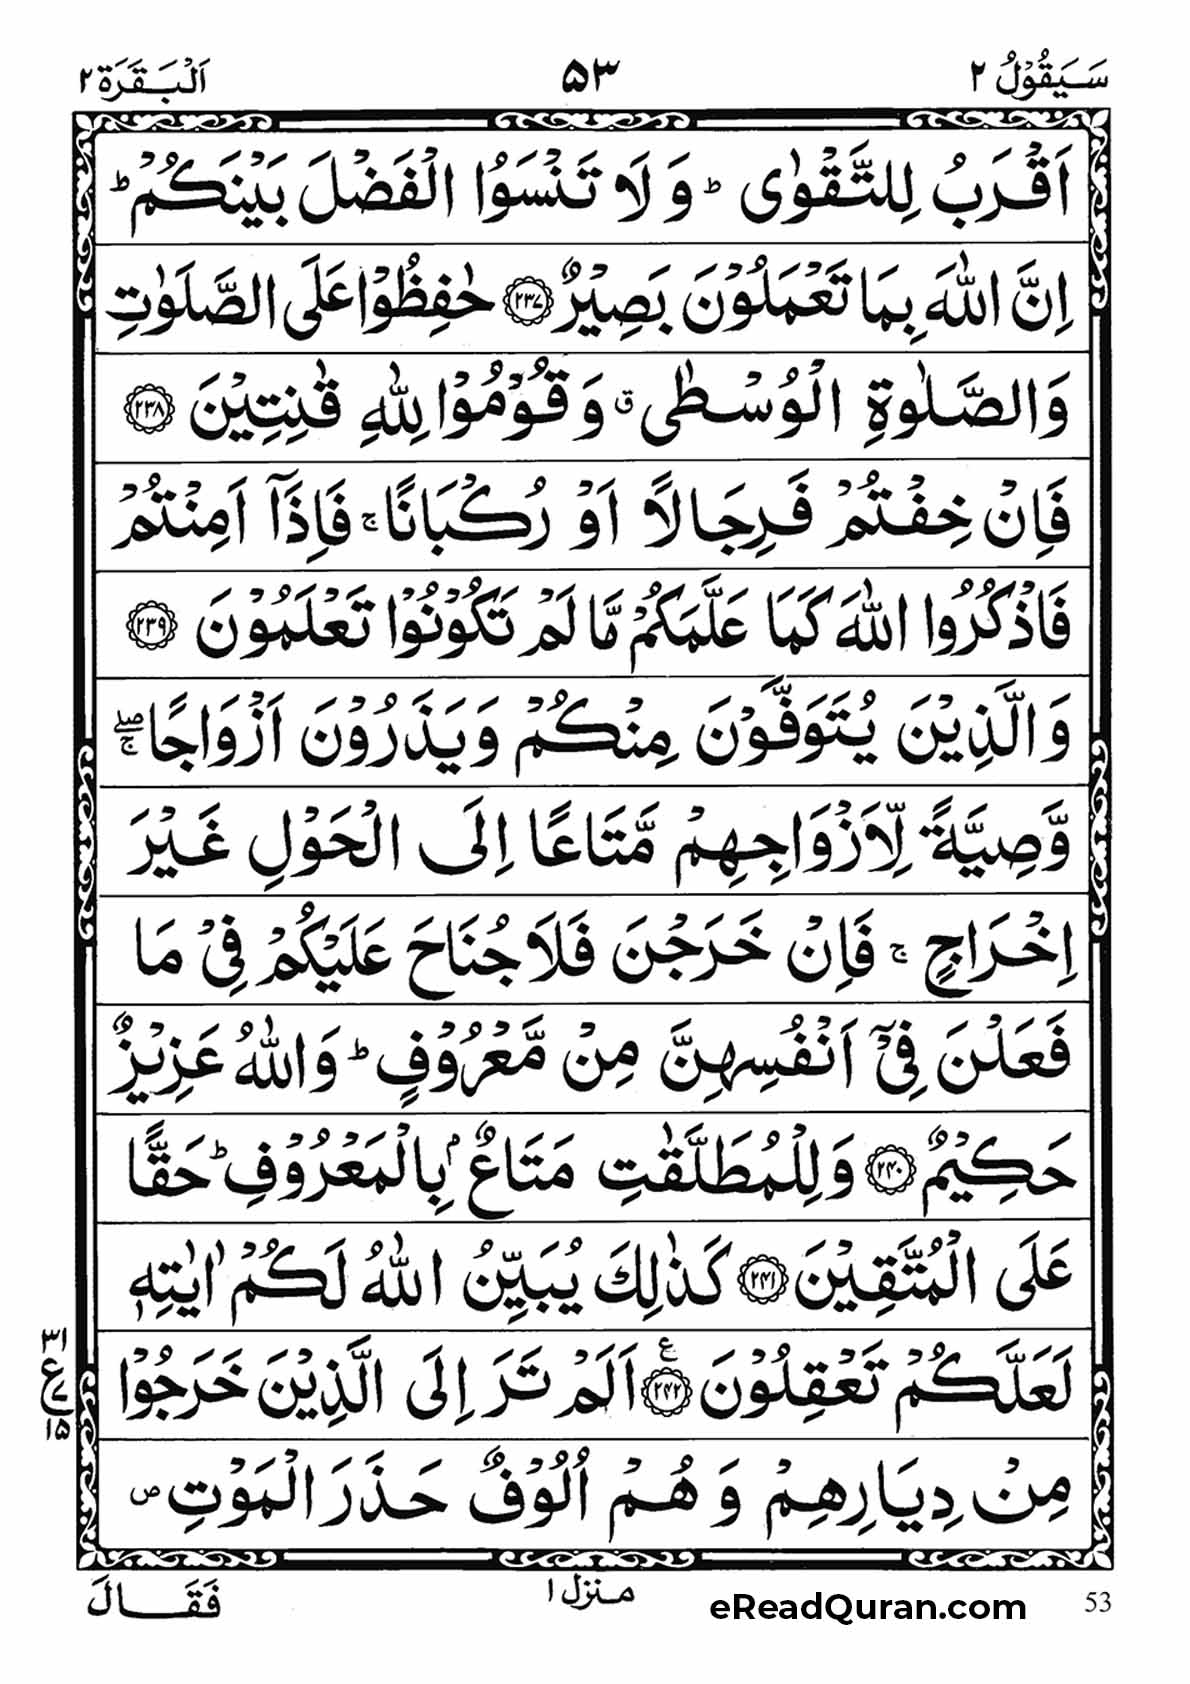 سَيَقُوْلُ ٢ ٥٣ اَلْبَقَرَة ٢
اَقْرَبُ لِلتَّقْوٰى ؕ وَ لَا تَنْسَوُا الْفَضْلَ بَيْنَكُمْ ؕ
اِنَّ اللّٰهَ بِمَا تَعْمَلُوْنَ بَصِيْرٌ ٢٣٧ حٰفِظُوْا عَلَى الصَّلَوٰتِ
وَالصَّلٰوةِ الْوُسْطٰى ق وَ قُوْمُوْا لِلّٰهِ قٰنِتِيْنَ ٢٣٨
فَاِنْ خِفْتُمْ فَرِجَالًا اَوْ رُكْبَانًا ۚ فَاِذَآ اَمِنْتُمْ
فَاذْكُرُوا اللّٰهَ كَمَا عَلَّمَكُمْ مَّا لَمْ تَكُوْنُوْا تَعْلَمُوْنَ ٢٣٩
وَالَّذِيْنَ يُتَوَفَّوْنَ مِنْكُمْ وَيَذَرُوْنَ اَزْوَاجًا ۖۚ
وَّصِيَّةً لِّاَزْوَاجِهِمْ مَّتَاعًا اِلَى الْحَوْلِ غَيْرَ
اِخْرَاجٍ ۚ فَاِنْ خَرَجْنَ فَلَا جُنَاحَ عَلَيْكُمْ فِيْ مَا
فَعَلْنَ فِيْٓ اَنْفُسِهِنَّ مِنْ مَّعْرُوْفٍ ؕ وَاللّٰهُ عَزِيْزٌ
حَكِيْمٌ ٢٤٠ وَلِلْمُطَلَّقٰتِ مَتَاعٌۢ بِالْمَعْرُوْفِ ؕ حَقًّا
عَلَى الْمُتَّقِيْنَ ٢٤١ كَذٰلِكَ يُبَيِّنُ اللّٰهُ لَكُمْ اٰيٰتِهٖ
لَعَلَّكُمْ تَعْقِلُوْنَ ٢٤٢ ع اَلَمْ تَرَ اِلَى الَّذِيْنَ خَرَجُوْا
٣١
ع
٧
١٥
مِنْ دِيَارِهِمْ وَ هُمْ اُلُوْفٌ حَذَرَ الْمَوْتِ ص
فَقَالَ منزل ١ eReadQuran.com 53